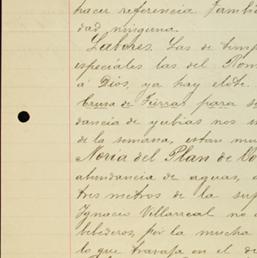 hacer referencia. Tambié
dad ninguna.
Labores. Las de temp
especiales las del Rom
á Dios, ya hay elote
Cruza de Tierras para s
dancia de yubias nos
de la semana, estan mu
Noria del Plan de
abundancia de aguas,
tres metros de la sup
Ignacio Villarreal no
bebederos, por la mucha
lo que trabaja en el de